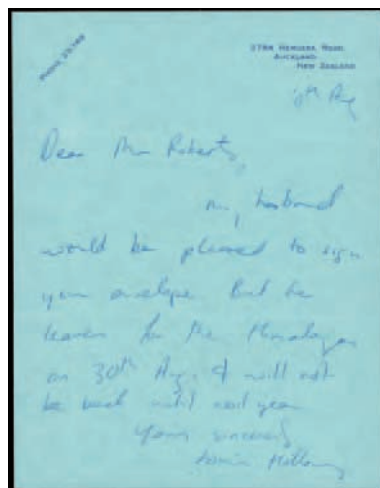 278A Remuera Road
Auckland
New Zealand
Aug
Dear Mr Roberts,
My husband
would be pleased to sign
your envelope but he
leaves for the Himalayas
on 30th Aug. & will not
be back until next year
Yours sincerely
Louise Hillary